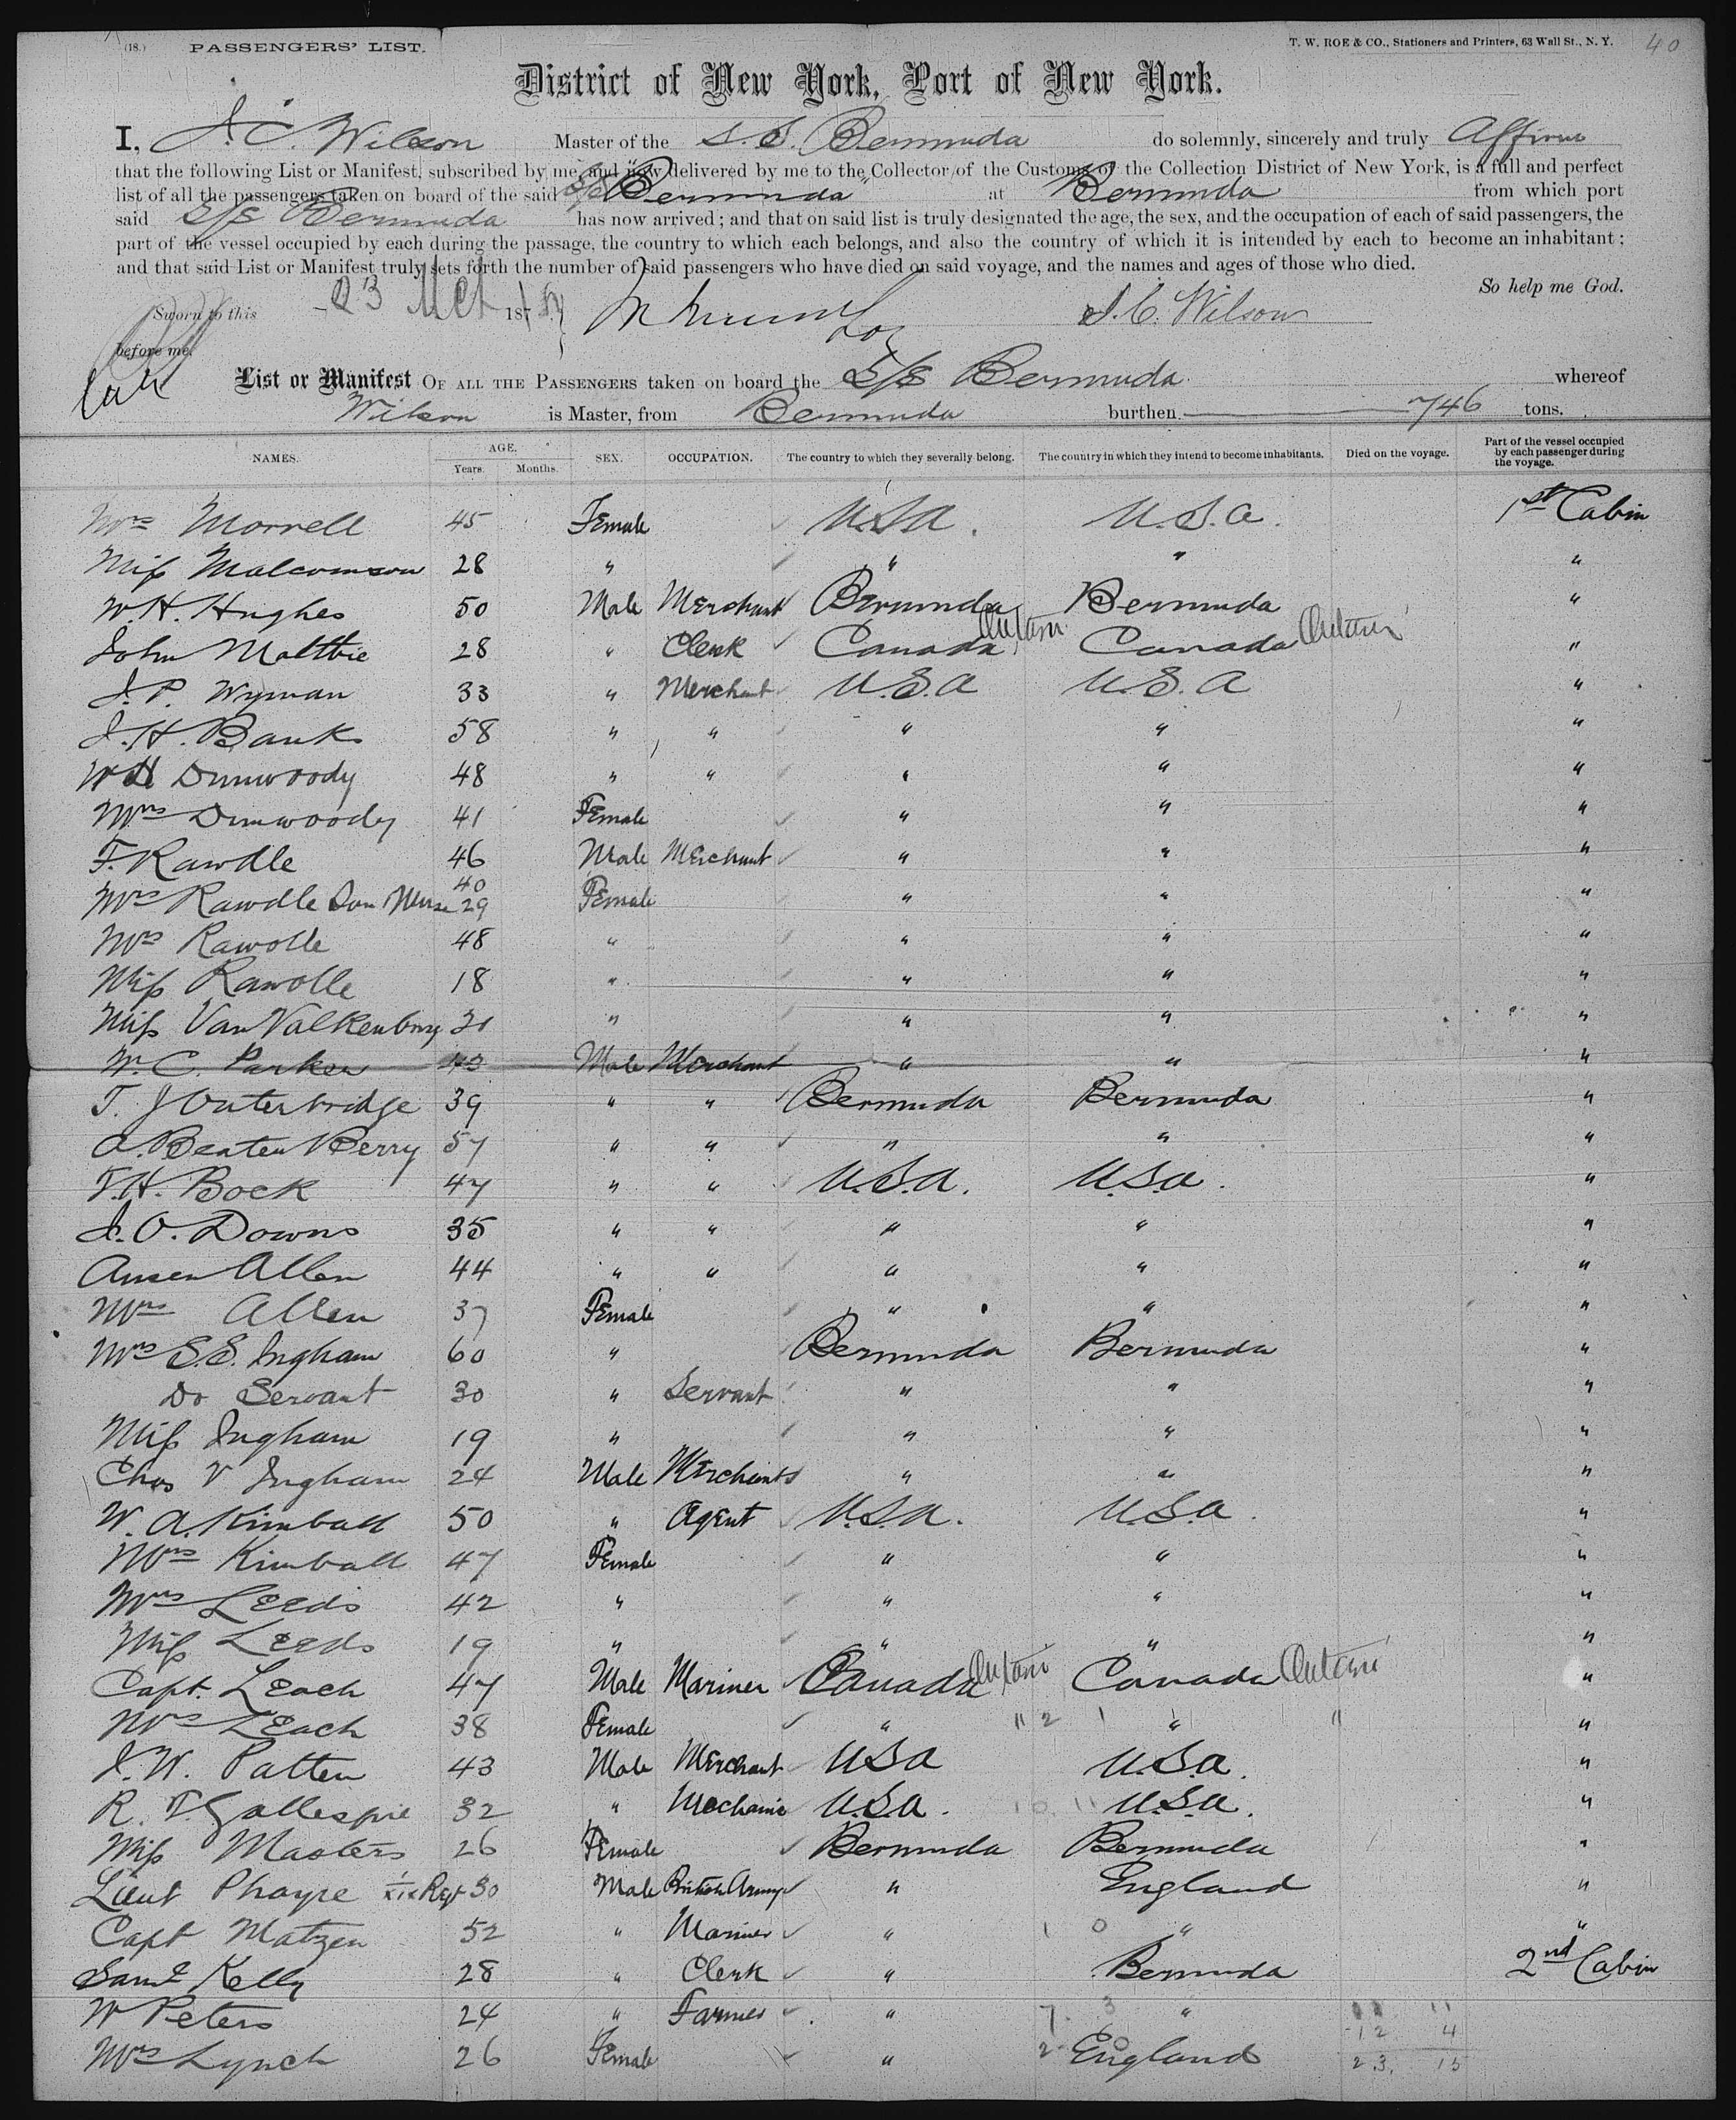 (18.) PASSENGERS' LIST. T. W. ROE & CO., Stationers and Printers, 63 Wall St., N. Y. 40
District of New York, Port of New York.
I, J. C. Wilson Master of the S. S. Bermuda do solemnly, sincerely and truly Affirm
that the following List or Manifest, subscribed by me, and now delivered by me to the Collector of the Customs of the Collection District of New York, is a full and perfect
list of all the passengers taken on board of the said S/S "Bermuda" at Bermuda from which port
said S/S Bermuda has now arrived; and that on said list is truly designated the age, the sex, and the occupation of each of said passengers, the
part of the vessel occupied by each during the passage, the country to which each belongs, and also the country of which it is intended by each to become an inhabitant;
and that said List or Manifest truly sets forth the number of said passengers who have died on said voyage, and the names and ages of those who died.
So help me God.
Sworn to this 23 187 J. C. Wilson
before me.
List or Manifest OF ALL THE PASSENGERS taken on board the S/S Bermuda whereof
Wilson is Master, from Bermuda burthen 746 tons.
NAMES. AGE. Years. Months. SEX. OCCUPATION. The country to which they severally belong. The country in which they intend to become inhabitants. Died on the voyage. Part of the vessel occupied by each passenger during the voyage.
Mrs Morrell 45 Female U.S.A. U.S.A. 1st Cabin
Miss Malcomson 28 " " " "
W. H. Hughes 50 Male Merchant Bermuda Bermuda "
John Maltbie 28 " Clerk Canada Canada "
J. P. Wyman 33 " Merchant U.S.A U.S.A "
J. H. Banks 58 " " " " "
W H Dunwoody 48 " " " " "
Mrs Dunwoody 41 Female " " "
F. Rawolle 46 Male Merchant " " "
Mrs Rawolle Son Nurse 40 29 Female " " "
Mrs Rawolle 48 " " " "
Miss Rawolle 18 " " " "
Miss Van Valkenburg 31 " " " "
W. C. Parker 43 Male Merchant " " "
T. J Outerbridge 39 " " Bermuda Bermuda "
A. Beaten Berry 57 " " " " "
T. H. Bock 47 " " U.S.A. U.S.A. "
J. O. Downs 35 " " " " "
Anson Allen 44 " " " " "
Mrs Allen 37 Female " " "
Mrs S. S. Ingham 60 " Bermuda Bermuda "
Do Servant 30 " Servant " " "
Miss Ingham 19 " " " "
Chas V Ingham 24 Male Merchant " " "
W. A. Kimball 50 " Agent U.S.A. U.S.A. "
Mrs Kimball 47 Female " " "
Mrs Leeds 42 " " " "
Miss Leeds 19 " " " "
Capt. Leach 47 Male Mariner Canada Canada "
Mrs Leach 38 Female " " 2 1 " " "
J. W. Patten 43 Male Merchant USA U.S.A. "
R. T. Gallespie 32 " Mechanic U.S.A. 10. 11 U.S.A. "
Miss Masters 26 Female Bermuda Bermuda "
Lieut Phayre Regt 30 Male British Army " England "
Capt Matzen 52 " Mariner " 1 0 " "
Saml Kelly 28 " Clerk " Bermuda 2nd Cabin
W Peters 24 " Farmer " 7. 3 " 11 11
Mrs Lynch 26 Female " 2 0 England 12 4
23. 15